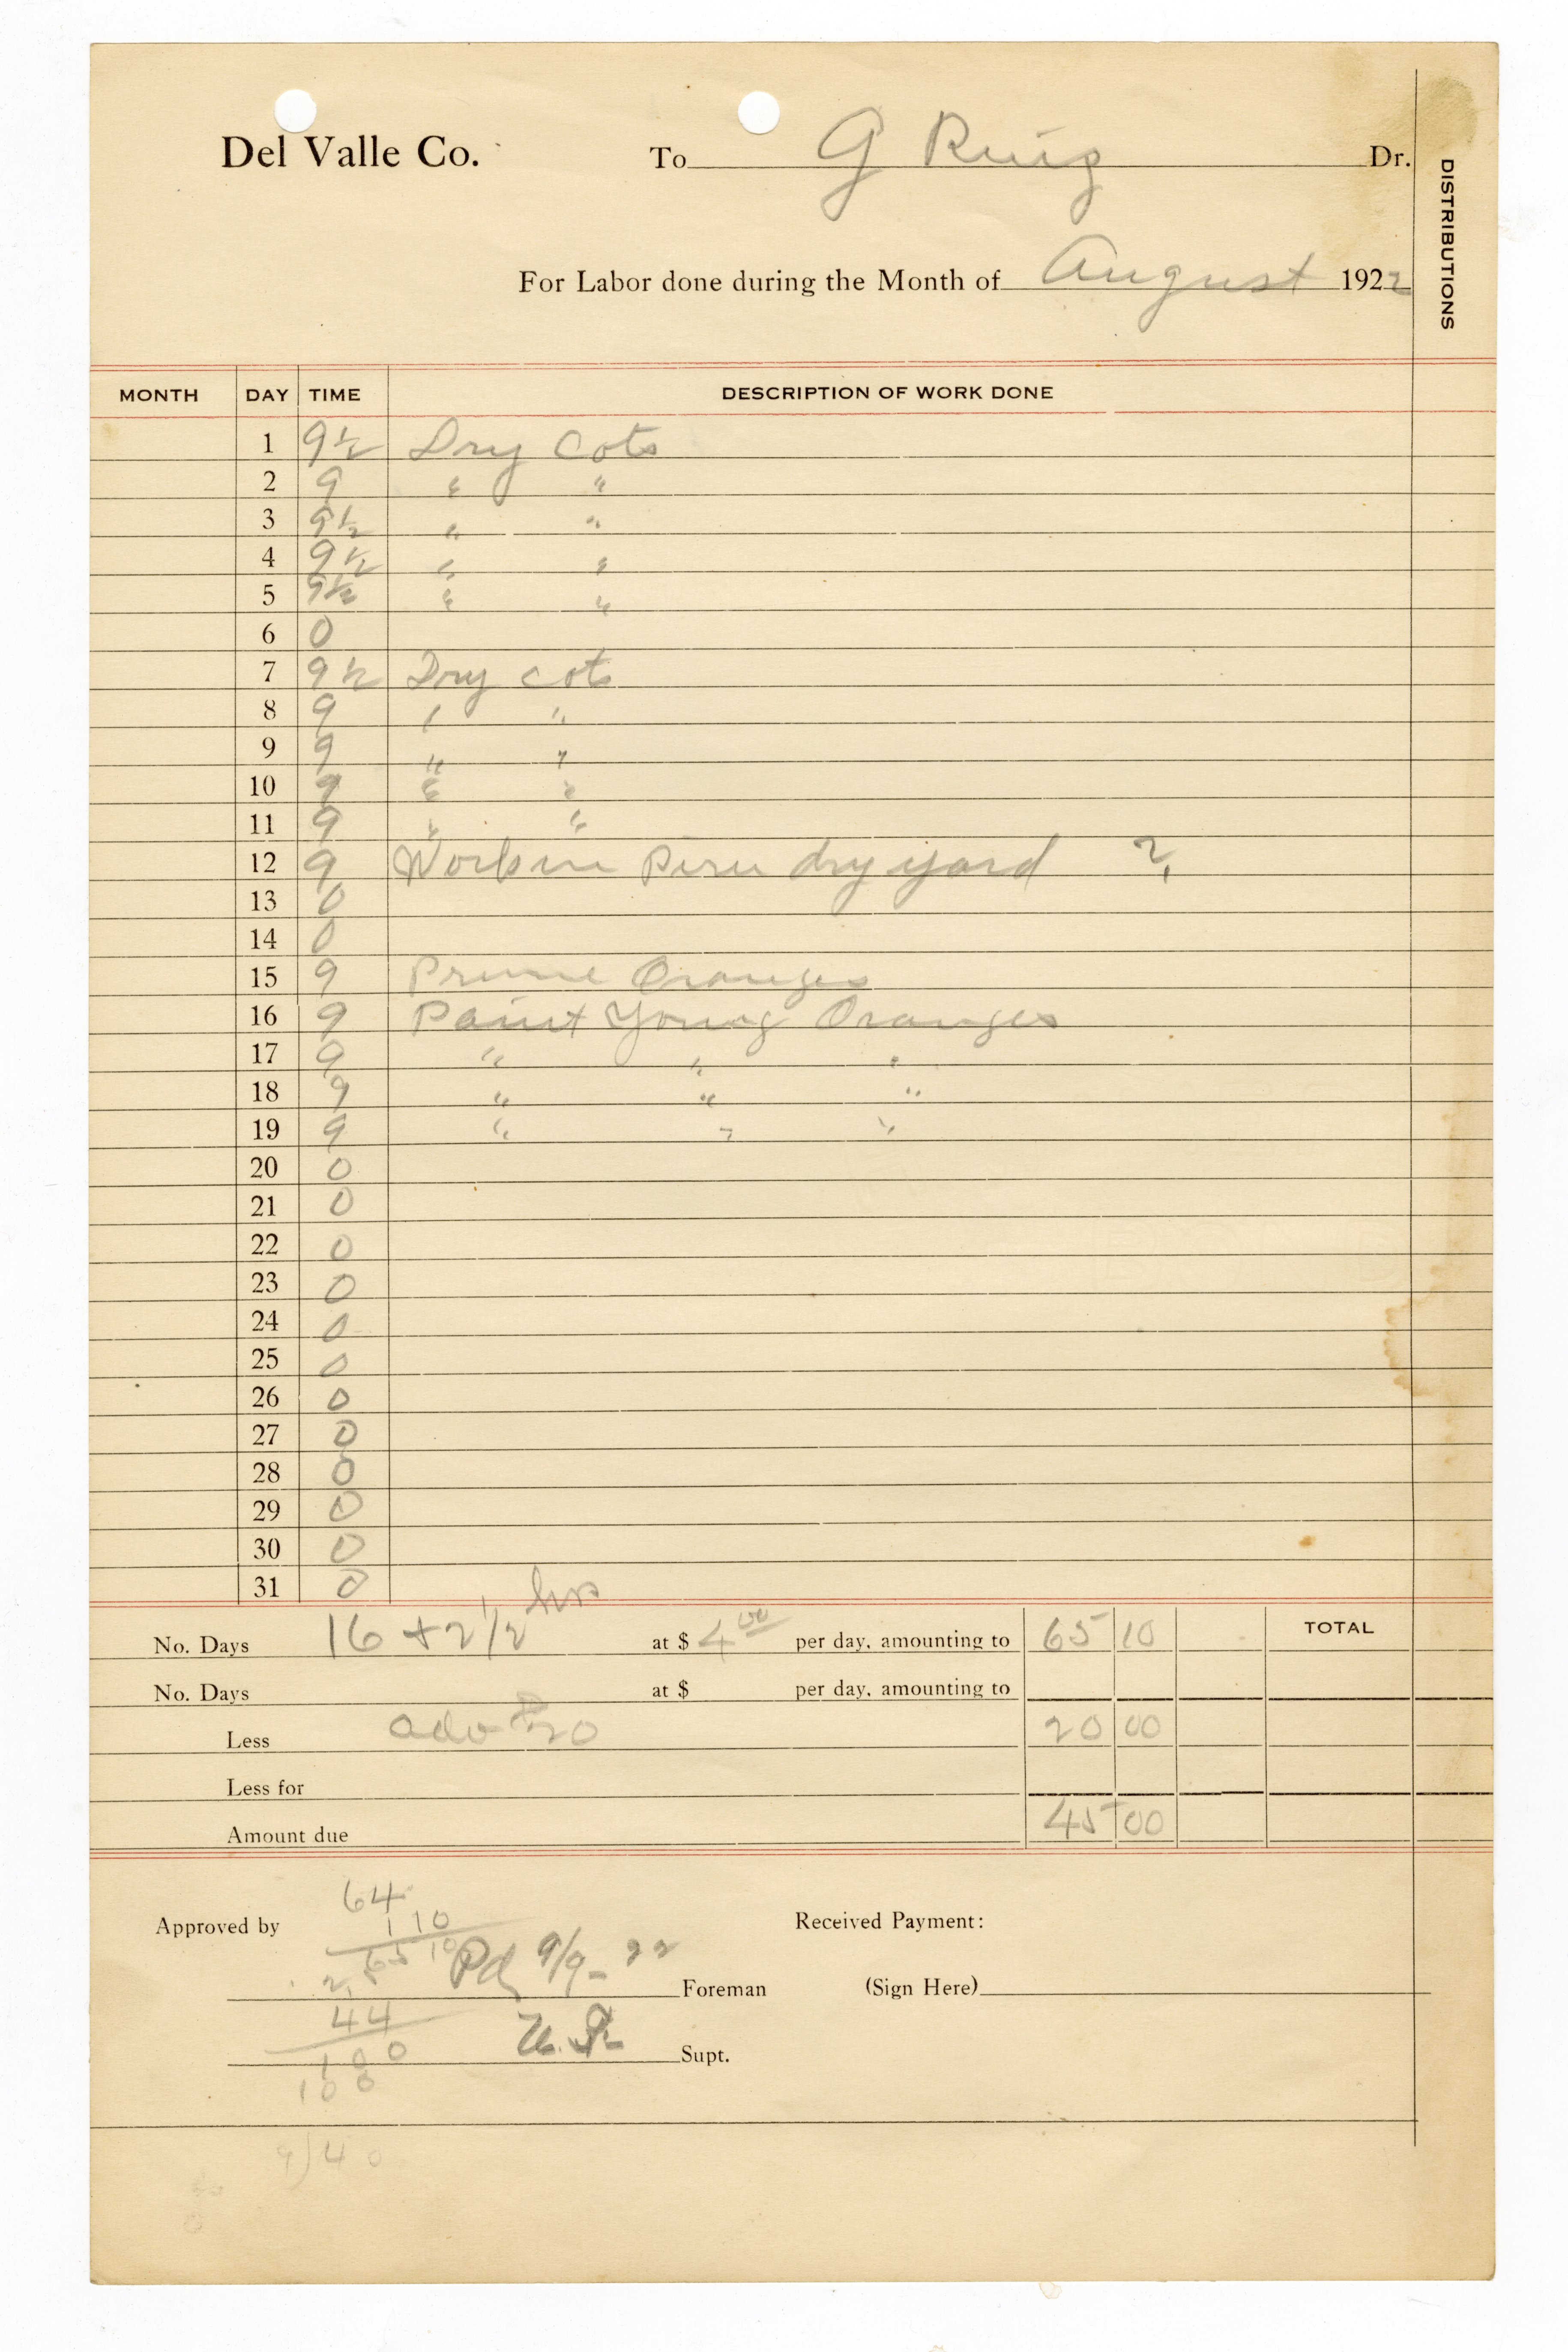 Del Valle Co. To G Ruiz Dr.
DISTRIBUTIONS
For Labor done during the Month of August 1922
MONTH DAY TIME DESCRIPTION OF WORK DONE
1 9½ Dry Cots
2 9 " "
3 9½ " "
4 9½ " "
5 9½ " "
6 0
7 9½ Dry cots
8 9 " "
9 9 " "
10 9 " "
11 9 " "
12 9 Work in Piru dry yard
13 0
14 0
15 9 Prune Oranges
16 9 Paint Young Oranges
17 9 " " "
18 9 " " "
19 9 " " "
20 0
21 0
22 0
23 0
24 0
25 0
26 0
27 0
28 0
29 0
30 0
31 0
No. Days 16 + 2½ hrs at $ 4 00 per day, amounting to 65 10 TOTAL
No. Days at $ per day, amounting to
Less adv 20 20 00
Less for
Amount due 45 00
64
Approved by 1 10 Received Payment:
65 10
Pd 9/9-22
Foreman (Sign Here)
44
Supt.
100
9)40